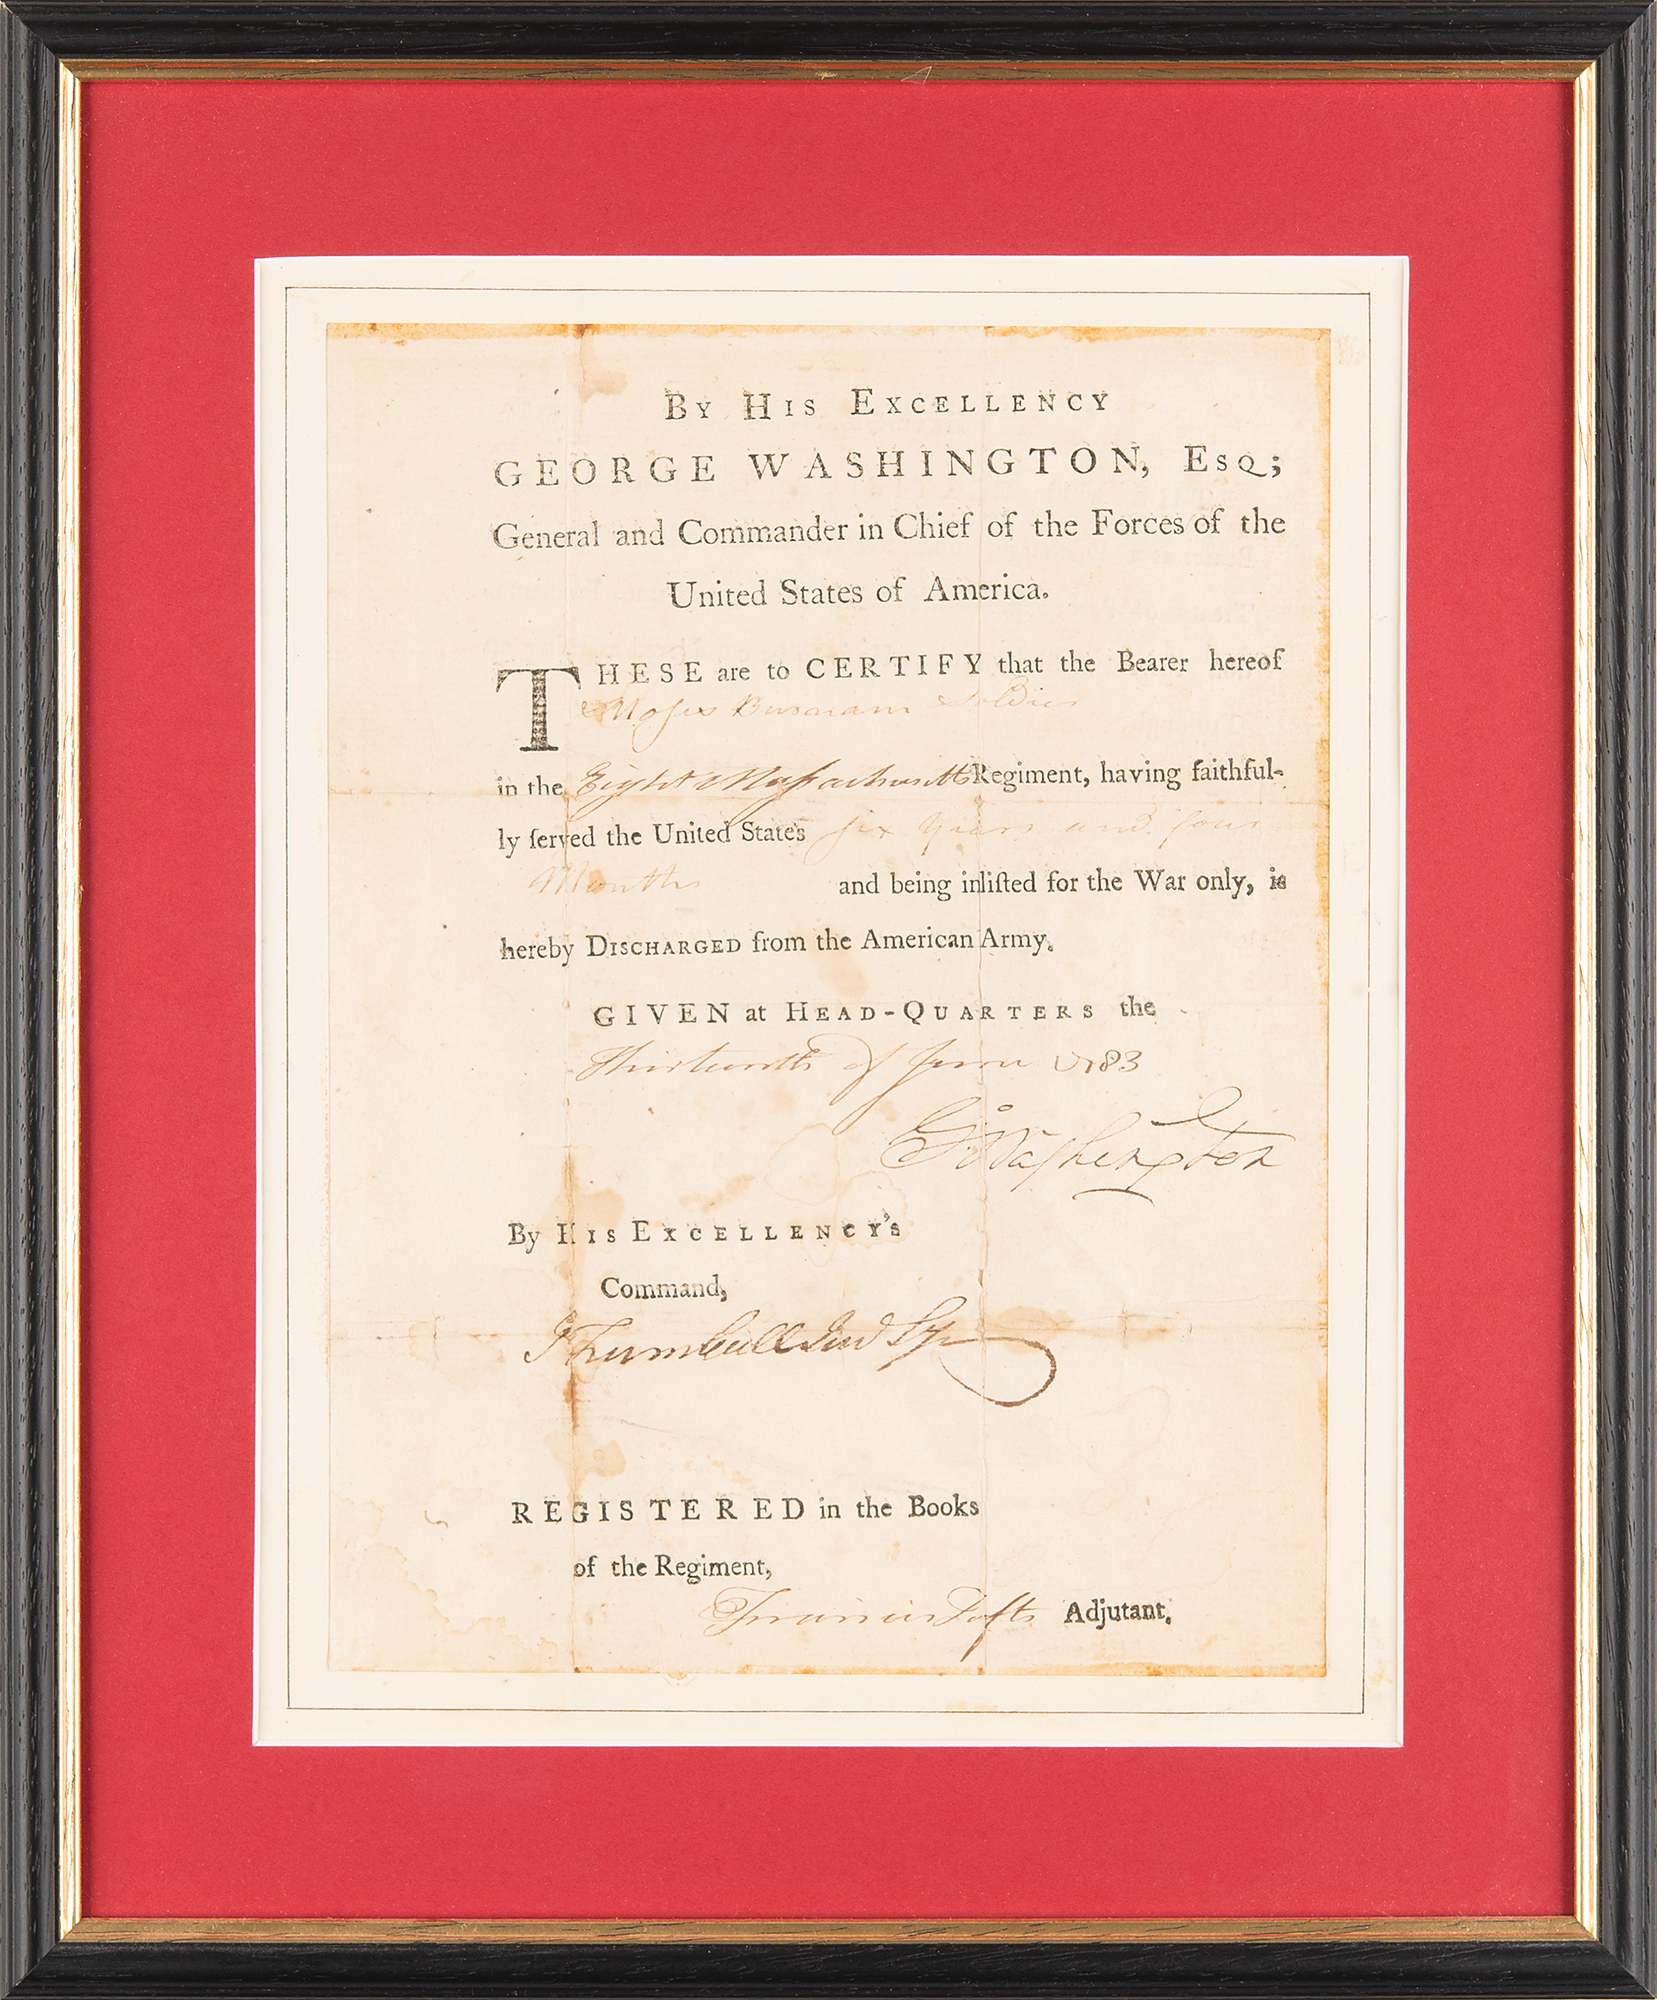 BY HIS EXCELLENCY
GEORGE WASHINGTON, ESQ;
General and Commander in Chief of the Forces of the
United States of America.
THESE are to CERTIFY that the Bearer hereof
Moses Soldier
in the Eight Massachusetts Regiment, having faithful-
ly ſerved the United States six Years and four
Months and being inliſted for the War only, is
hereby DISCHARGED from the American Army.
GIVEN at HEAD-QUARTERS the
Thirteenth of June 1783
Go Washington
By HIS EXCELLENCY'S
Command,
J Trumbull Jun Sy
REGISTERED in the Books
of the Regiment,
Francis Tufts Adjutant.